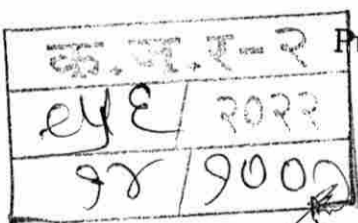 क.ज.र-२
९५६ / २०२२
१४ / १००२